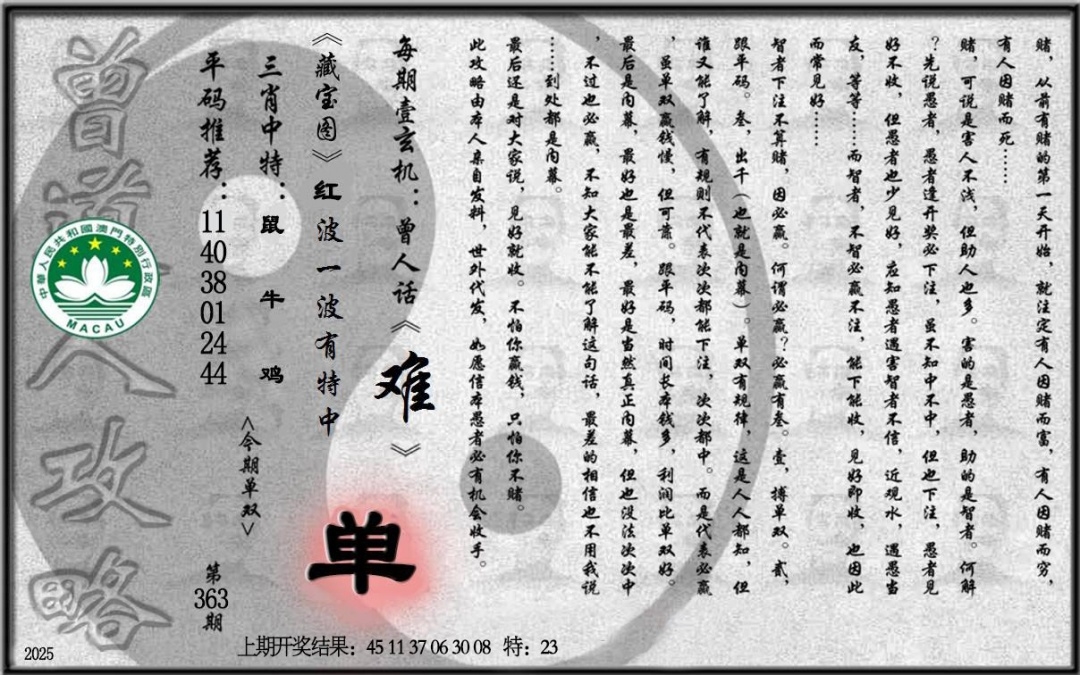 赌，从前有赌的第一天开始，就注定有人因赌而富，有人因赌而穷，
有人因赌而死……
赌，可说是害人不浅，但助人也多。害的是愚者，助的是智者。何解
？先说愚者，愚者逢开奖必下注，虽不知中不中，但也下注，愚者见
好不收，但愚者也少见好，应知愚者遇害智者不信，近观水，遇愚当
友，等等……而智者，不智必赢不注，能下能收，见好即收，也因此
而常见好……
智者下注不算赌，因必赢。何谓必赢？必赢有叁。壹，搏单双。贰，
跟单码。叁，出千（也就是内幕）。单双有规律，这是人人都知，但
谁又能了解，有规则不代表次次都能下注，次次都中。而是代表必赢
，虽单双赢钱慢，但可靠。跟单码，时间长本钱多，利润比单双好。
最后是内幕，最好也是最差，最好是当然真正内幕，但也没法次次中
，不过也必赢，不知大家能不能了解这句话，最差的相信也不用我说
……到处都是内幕。
最后还是对大家说，见好就收。不怕你赢钱，只怕你不赌。
此攻略由本人亲自发料，世外代发，如愿信本愚者必有机会收手。
每期壹玄机：曾人话《难》
《藏宝图》红波一波有特中
单
三肖中特：鼠牛鸡
<今期单双>
平码推荐：11 40 38 01 24 44
第363期
曾道人攻略
中華人民共和國澳門特別行政區
MACAU
2025
上期开奖结果：45 11 37 06 30 08 特：23